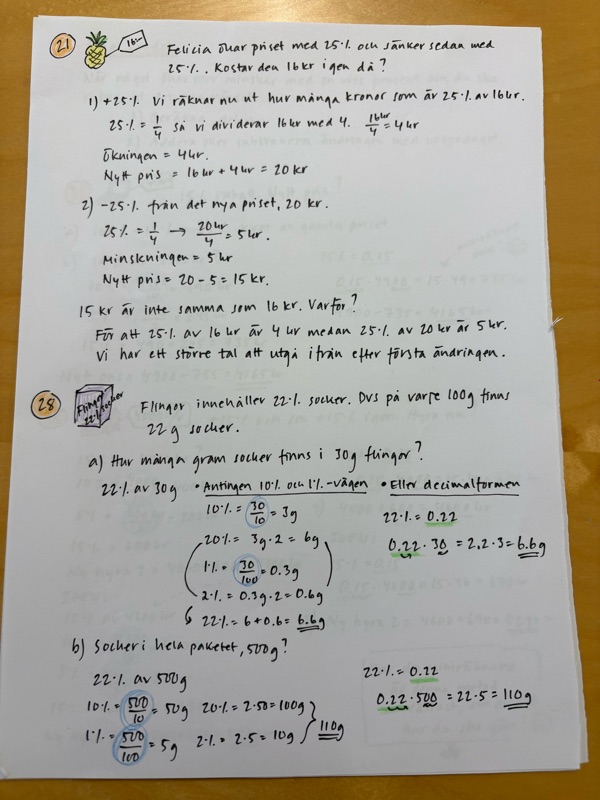 21
16kr
Felicia ökar priset med 25% och sänker sedan med
25%. Kostar den 16kr igen då?
1) +25% Vi räknar nu ut hur många kronor som är 25% av 16kr.
25% = 1/4 så vi dividerar 16kr med 4. 16kr/4 = 4kr
Ökningen = 4kr.
Nytt pris = 16kr + 4kr = 20kr
2) -25% från det nya priset, 20 kr.
25% = 1/4 → 20kr/4 = 5kr.
Minskningen = 5 kr
Nytt pris = 20 - 5 = 15 kr.
15 kr är inte samma som 16 kr. Varför?
För att 25% av 16kr är 4kr medan 25% av 20kr är 5kr.
Vi har ett större tal att utgå ifrån efter första ändringen.
28
Flingor
22% socker
Flingor innehåller 22% socker. Dvs på varje 100g finns
22g socker.
a) Hur många gram socker finns i 30g flingor?
22% av 30g • Antingen 10% och 1%-vägen • Eller decimalformen
10% = 30/10 = 3g
22% = 0.22
20% = 3g·2 = 6g
0.22·30 = 2.2·3 = 6.6g
1% = 30/100 = 0.3g
2% = 0.3g·2 = 0.6g
22% = 6+0.6 = 6.6g
b) Socker i hela paketet, 500g?
22% av 500g
22% = 0.22
10% = 500/10 = 50g 20% = 2·50 = 100g
110g
0.22·500 = 22·5 = 110g
1% = 500/100 = 5g 2% = 2·5 = 10g